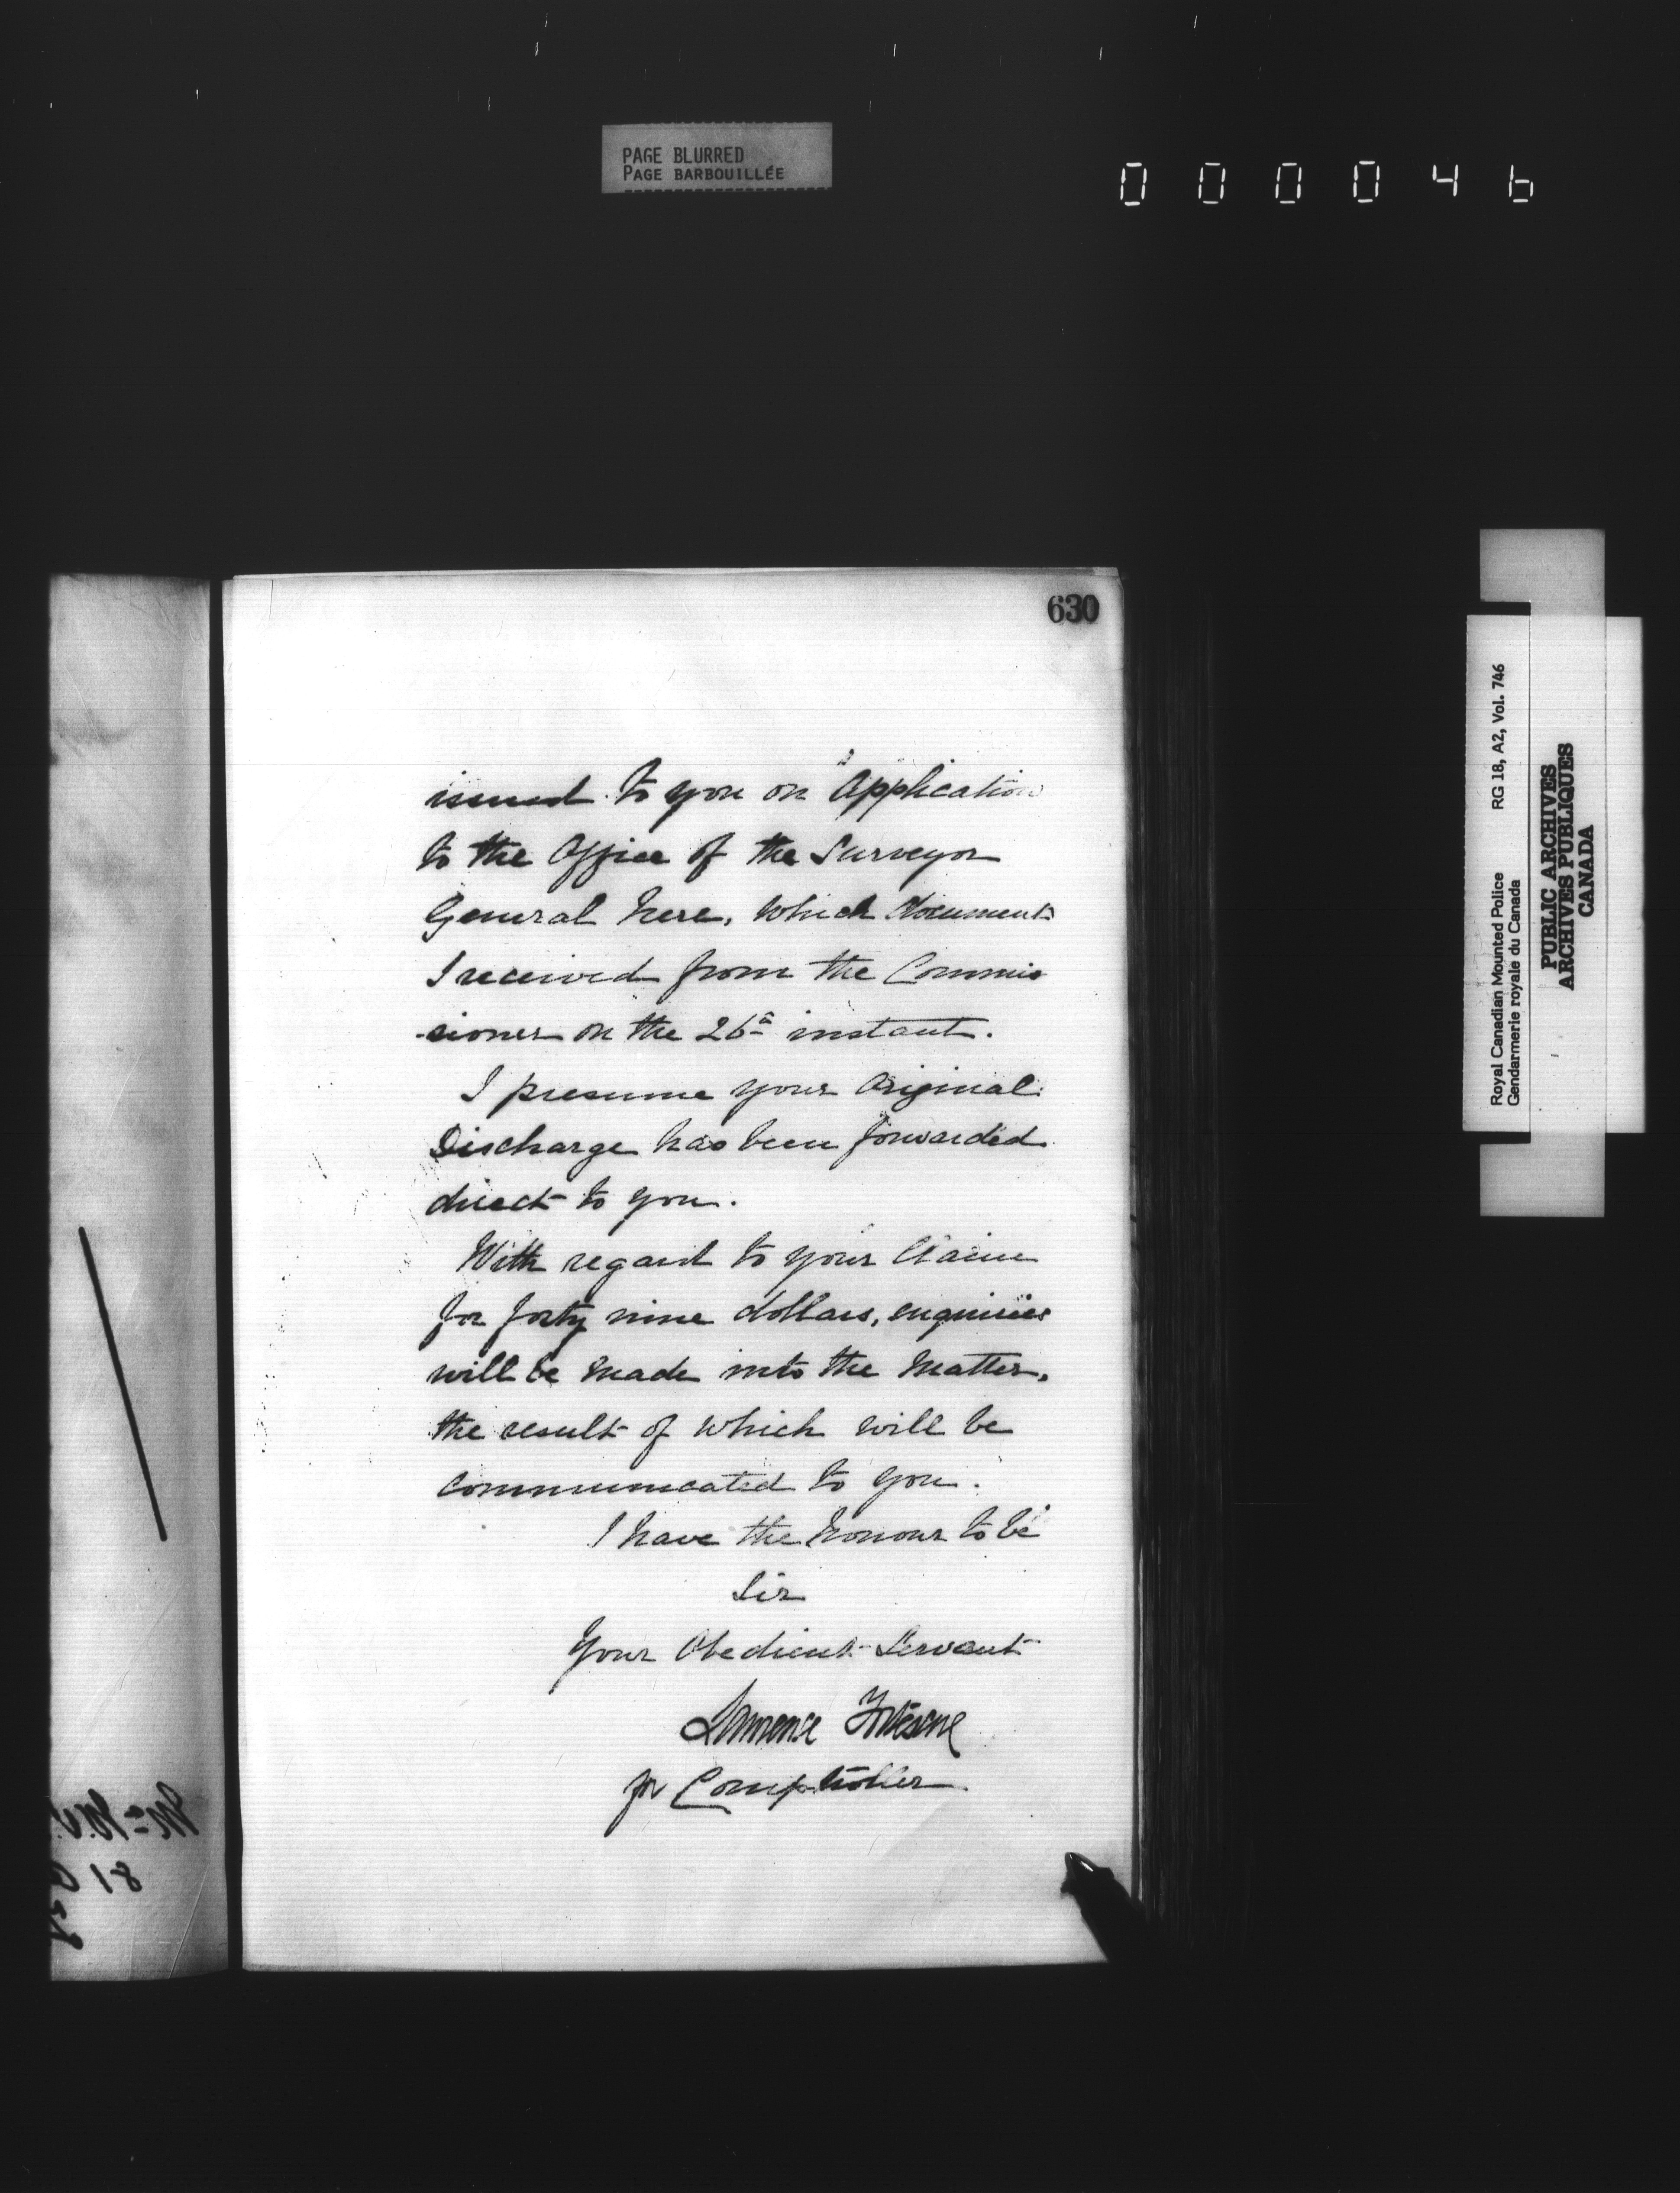 PAGE BLURRED
PAGE BARBOUILLÉE
000046
630
issued to you on Application
to the Office of the Surveyor
General here, which documents
I received from the Commis
-sioner on the 26th instant.
I presume your Original
Discharge has been forwarded
direct to you.
With regard to your Claim
for forty nine dollars, enquiries
will be made into the matter,
the result of which will be
communicated to you.
I have the honour to be
Sir
Your Obedient Servant
Lawrence Fortescue
for Comptroller
Royal Canadian Mounted Police RG 18, A2, Vol. 746
Gendarmerie royale du Canada
PUBLIC ARCHIVES
ARCHIVES PUBLIQUES
CANADA